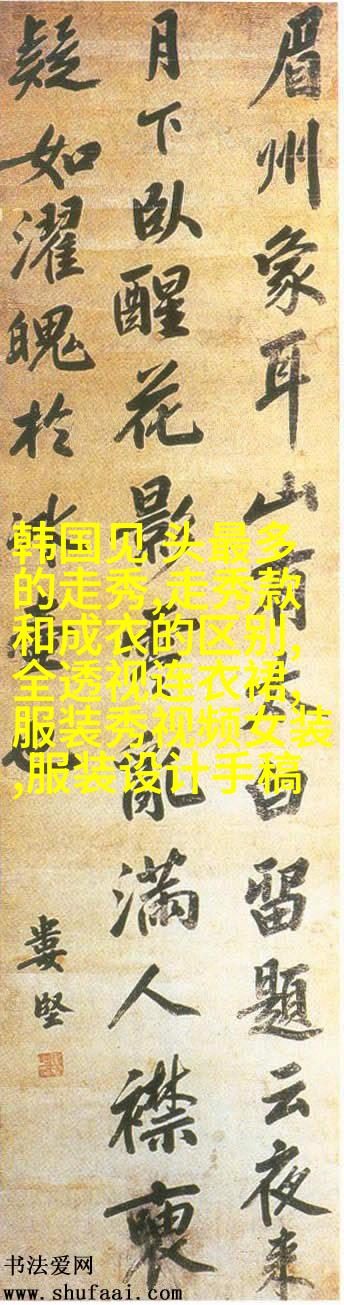 眉州象耳山有白留題云夜来
月下臥醒花影亂滿人襟
疑如濯魄於
婁堅
韩国见 头最多
的走秀,走秀款
和成衣的区别,
全透视连衣裙,
服装秀视频女装
,服装设计手稿
书法爱网
www.shufaai.com